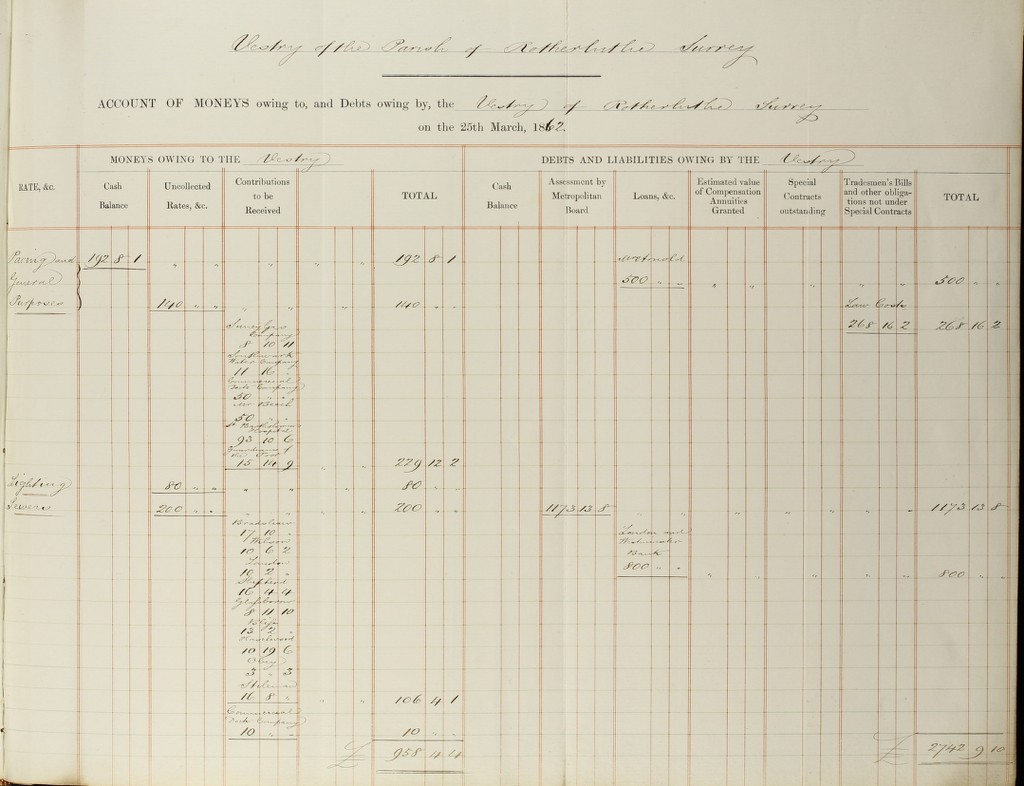 Vestry of the Parish of Rotherhithe Surrey
ACCOUNT OF MONEYS owing to, and Debts owing by, the Vestry of Rotherhithe Surrey
on the 25th March, 1862.
RATE, &c.
MONEYS OWING TO THE Vestry
DEBTS AND LIABILITIES OWING BY THE Vestry
Cash Balance
Uncollected Rates, &c.
Contributions to be Received
TOTAL
Cash Balance
Assessment by Metropolitan Board
Loans, &c.
Estimated value of Compensation Annuities Granted
Special Contracts outstanding
Tradesmen's Bills and other obligations not under Special Contracts
TOTAL
Paving and 192 8 1 " " " " " 192 8 1
General 500 " " " " " " " 500 " "
Purposes 140 " " " " " 140 " " Law Costs
Surrey Gas 268 16 2 268 16 2
Company
8 10 11
Southwark
Water Company
11 16 "
Commercial
Dock Company
50 " "
Mr Beach
50 " "
St Bartholomews
Hospital
93 10 6
Guardians of
the Poor
15 14 9 " " 229 12 2
Lighting 80 " " " " " " 80 " "
Sewers 200 " " " " " " 200 " " 1173 13 8 " " " " " " 1173 13 8
Bradshaw
17 10 " London and
Wilson Westminster
10 6 2 Bank
London 800 " " " " " " " 800 " "
10 2 "
Shepherd
16 4 4
8 4 10
13 2 "
Hazelwood
10 19 6
3 " 3
16 8 " " " 106 4 1
Commercial
Dock Company
10 " " 10 " "
£ 958 4 4 £ 2742 9 10